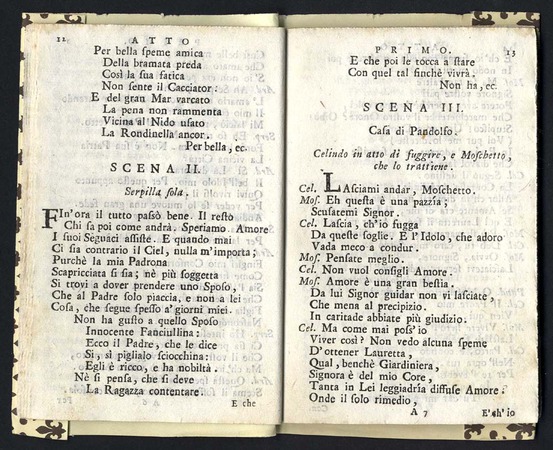 12 ATTO
Per bella speme amica
Della bramata preda
Così la sua fatica
Non sente il Cacciator:
E del gran Mar varcato
La pena non rammenta
Vicina al Nido usato
La Rondinella ancor.
Per bella, ec.
SCENA II.
Serpilla sola.
FIn'ora il tutto passò bene. Il resto
Chi sa poi come andrà. Speriamo. Amore
I suoi Seguaci assiste. E quando mai
Ci sia contrario il Ciel, nulla m'importa;
Purchè la mia Padrona
Scapricciata si sia; nè più soggetta
Si trovi a dover prendere uno Sposo,
Che al Padre solo piaccia, e non a lei
Cosa, che segue spesso a' giorni miei.
Non ha gusto a quello Sposo
Innocente Fanciullina:
Ecco il Padre, che le dice
Sì, sì piglialo sciocchina:
Egli è ricco, e ha nobiltà.
Nè si pensa, che si deve
La Ragazza contentare.
E che
PRIMO. 13
E che poi le tocca a stare
Con quel tal finchè vivrà.
Non ha, ec.
SCENA III.
Casa di Pandolfo.
Celindo in atto di fuggire, e Moschetto,
che lo trattiene.
Cel. LAsciami andar, Moschetto.
Mos. Eh questa è una pazzia;
Scusatemi Signor.
Cel. Lascia, ch'io fugga
Da queste soglie. E l'Idolo, che adoro
Vada meco a condur.
Mos. Pensate meglio.
Cel. Non vuol consigli Amore.
Mos. Amore è una gran bestia.
Da lui Signor guidar non vi lasciate,
Che mena al precipizio.
In caritade abbiate più giudizio.
Cel. Ma come mai poss'io
Viver così? Non vedo alcuna speme
D'ottener Lauretta,
Qual, benchè Giardiniera,
Signora è del mio Core,
Tanta in Lei leggiadrìa diffuse Amore.
Onde il solo rimedio,
A 7 E' ch' io